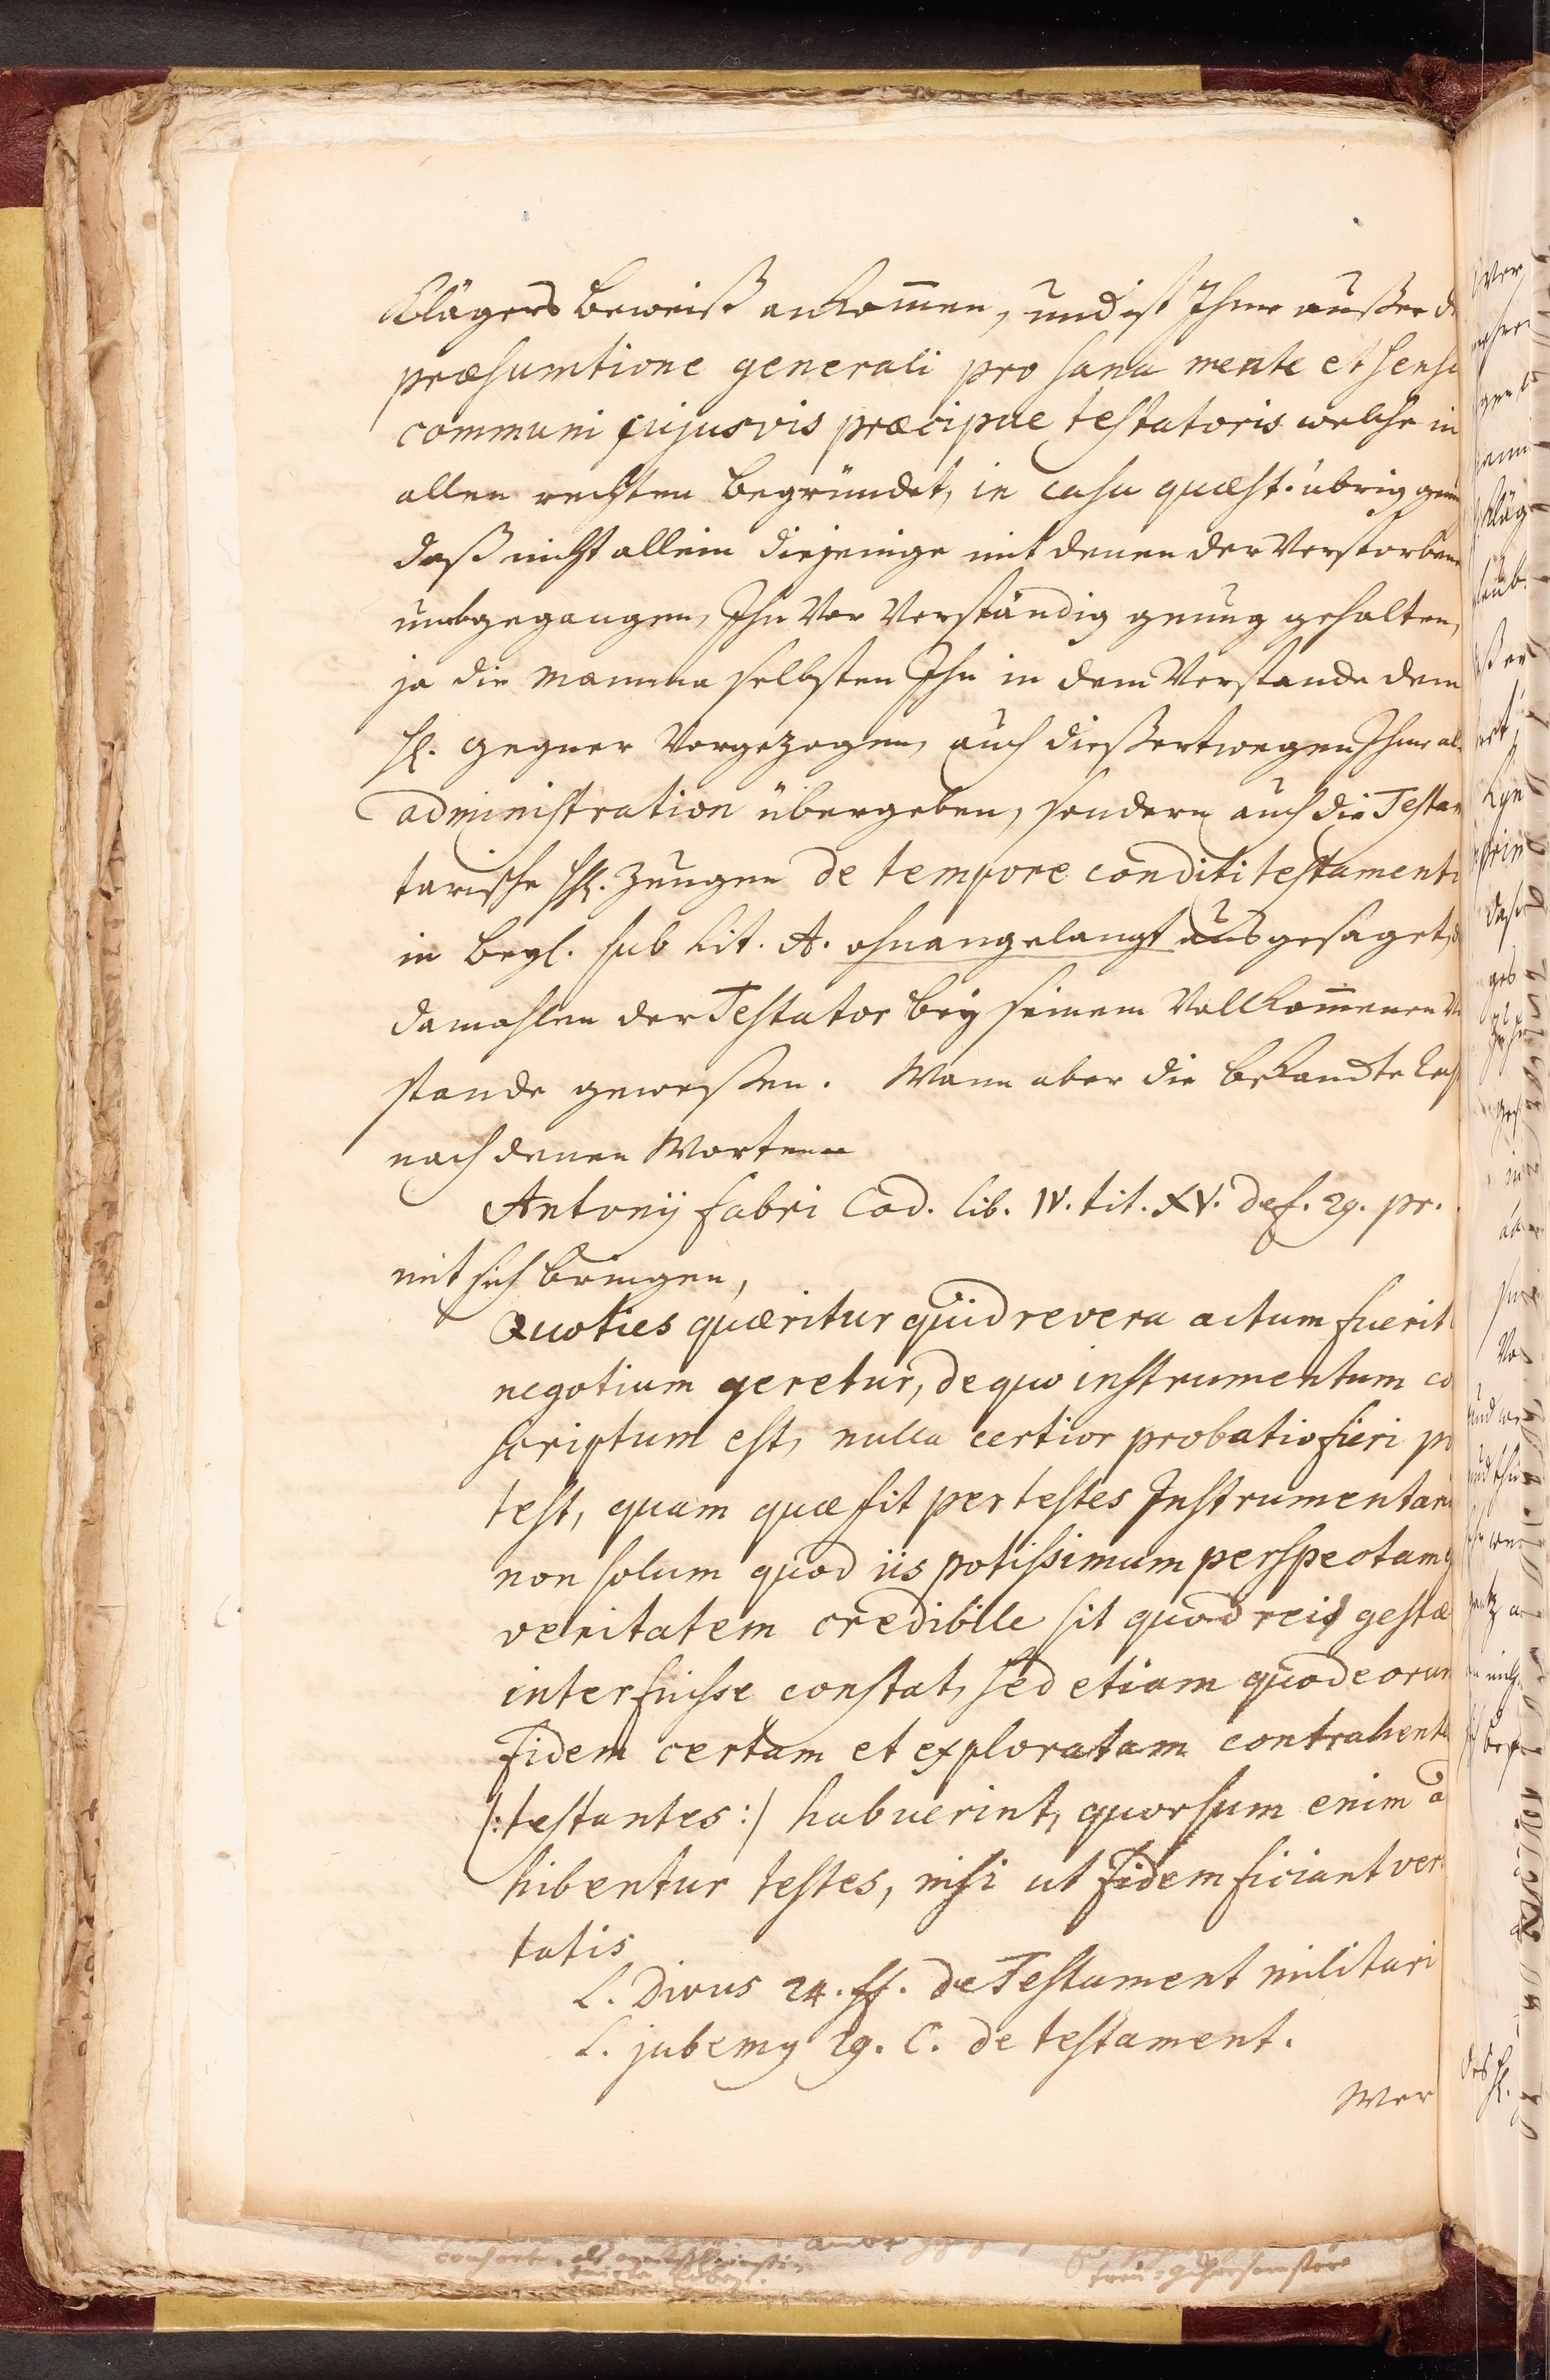 Klägers beweiß ankom̄en, und ist Ihme außer d
præsumtione generali pro sana mente et sensu
communi cujusvis præcipue testatoris welche in
allen rechten begründet, in casu quæst. übrig genu
daß nicht allein diejenige mit denen der Verstorbene
umbgegangen, Ihn Vor Verständig genug gehalten,
ja die Mamma selbsten Ihn in dem Verstande dem
H. Gegner Vorgezogen, auch dießertwegen Ihme al
administration übergeben, sondern auch die Testam
tarische HH. Zeugen de tempore conditi testamenti
in beyl. sub Lit. A. ohnangelangt ausgesaget,
damahlen der Testator bey seinem Vollkom̄enen Ve
stande geweßen. Wann aber die bekandte
nach denen Worten
Antonÿ Fabri Cod. lib. IV. tit. XV. def. 29. pr.
mit sich bringen,
Quoties quæritur quid revera actum fuerit
negotium geretur, de quo instrumentum co
scriptum est, nulla certior probatio fieri po
test, quam quæ fit per testes Instrumentari
non solum quod iis potissimum perspectam
veritatem credibile sit quod rei gestæ
interfuisse constat, sed etiam quod eorum
Fidem certam et exploratam contrahente
(:testantes:) habuerint, quorsum enim a
hibentur testes, nisi ut Fidem ficiant veri
tatis
L. Divus 24. ff. de Testament militari
L. jubemꝰ 29. C. de testament.
Wer